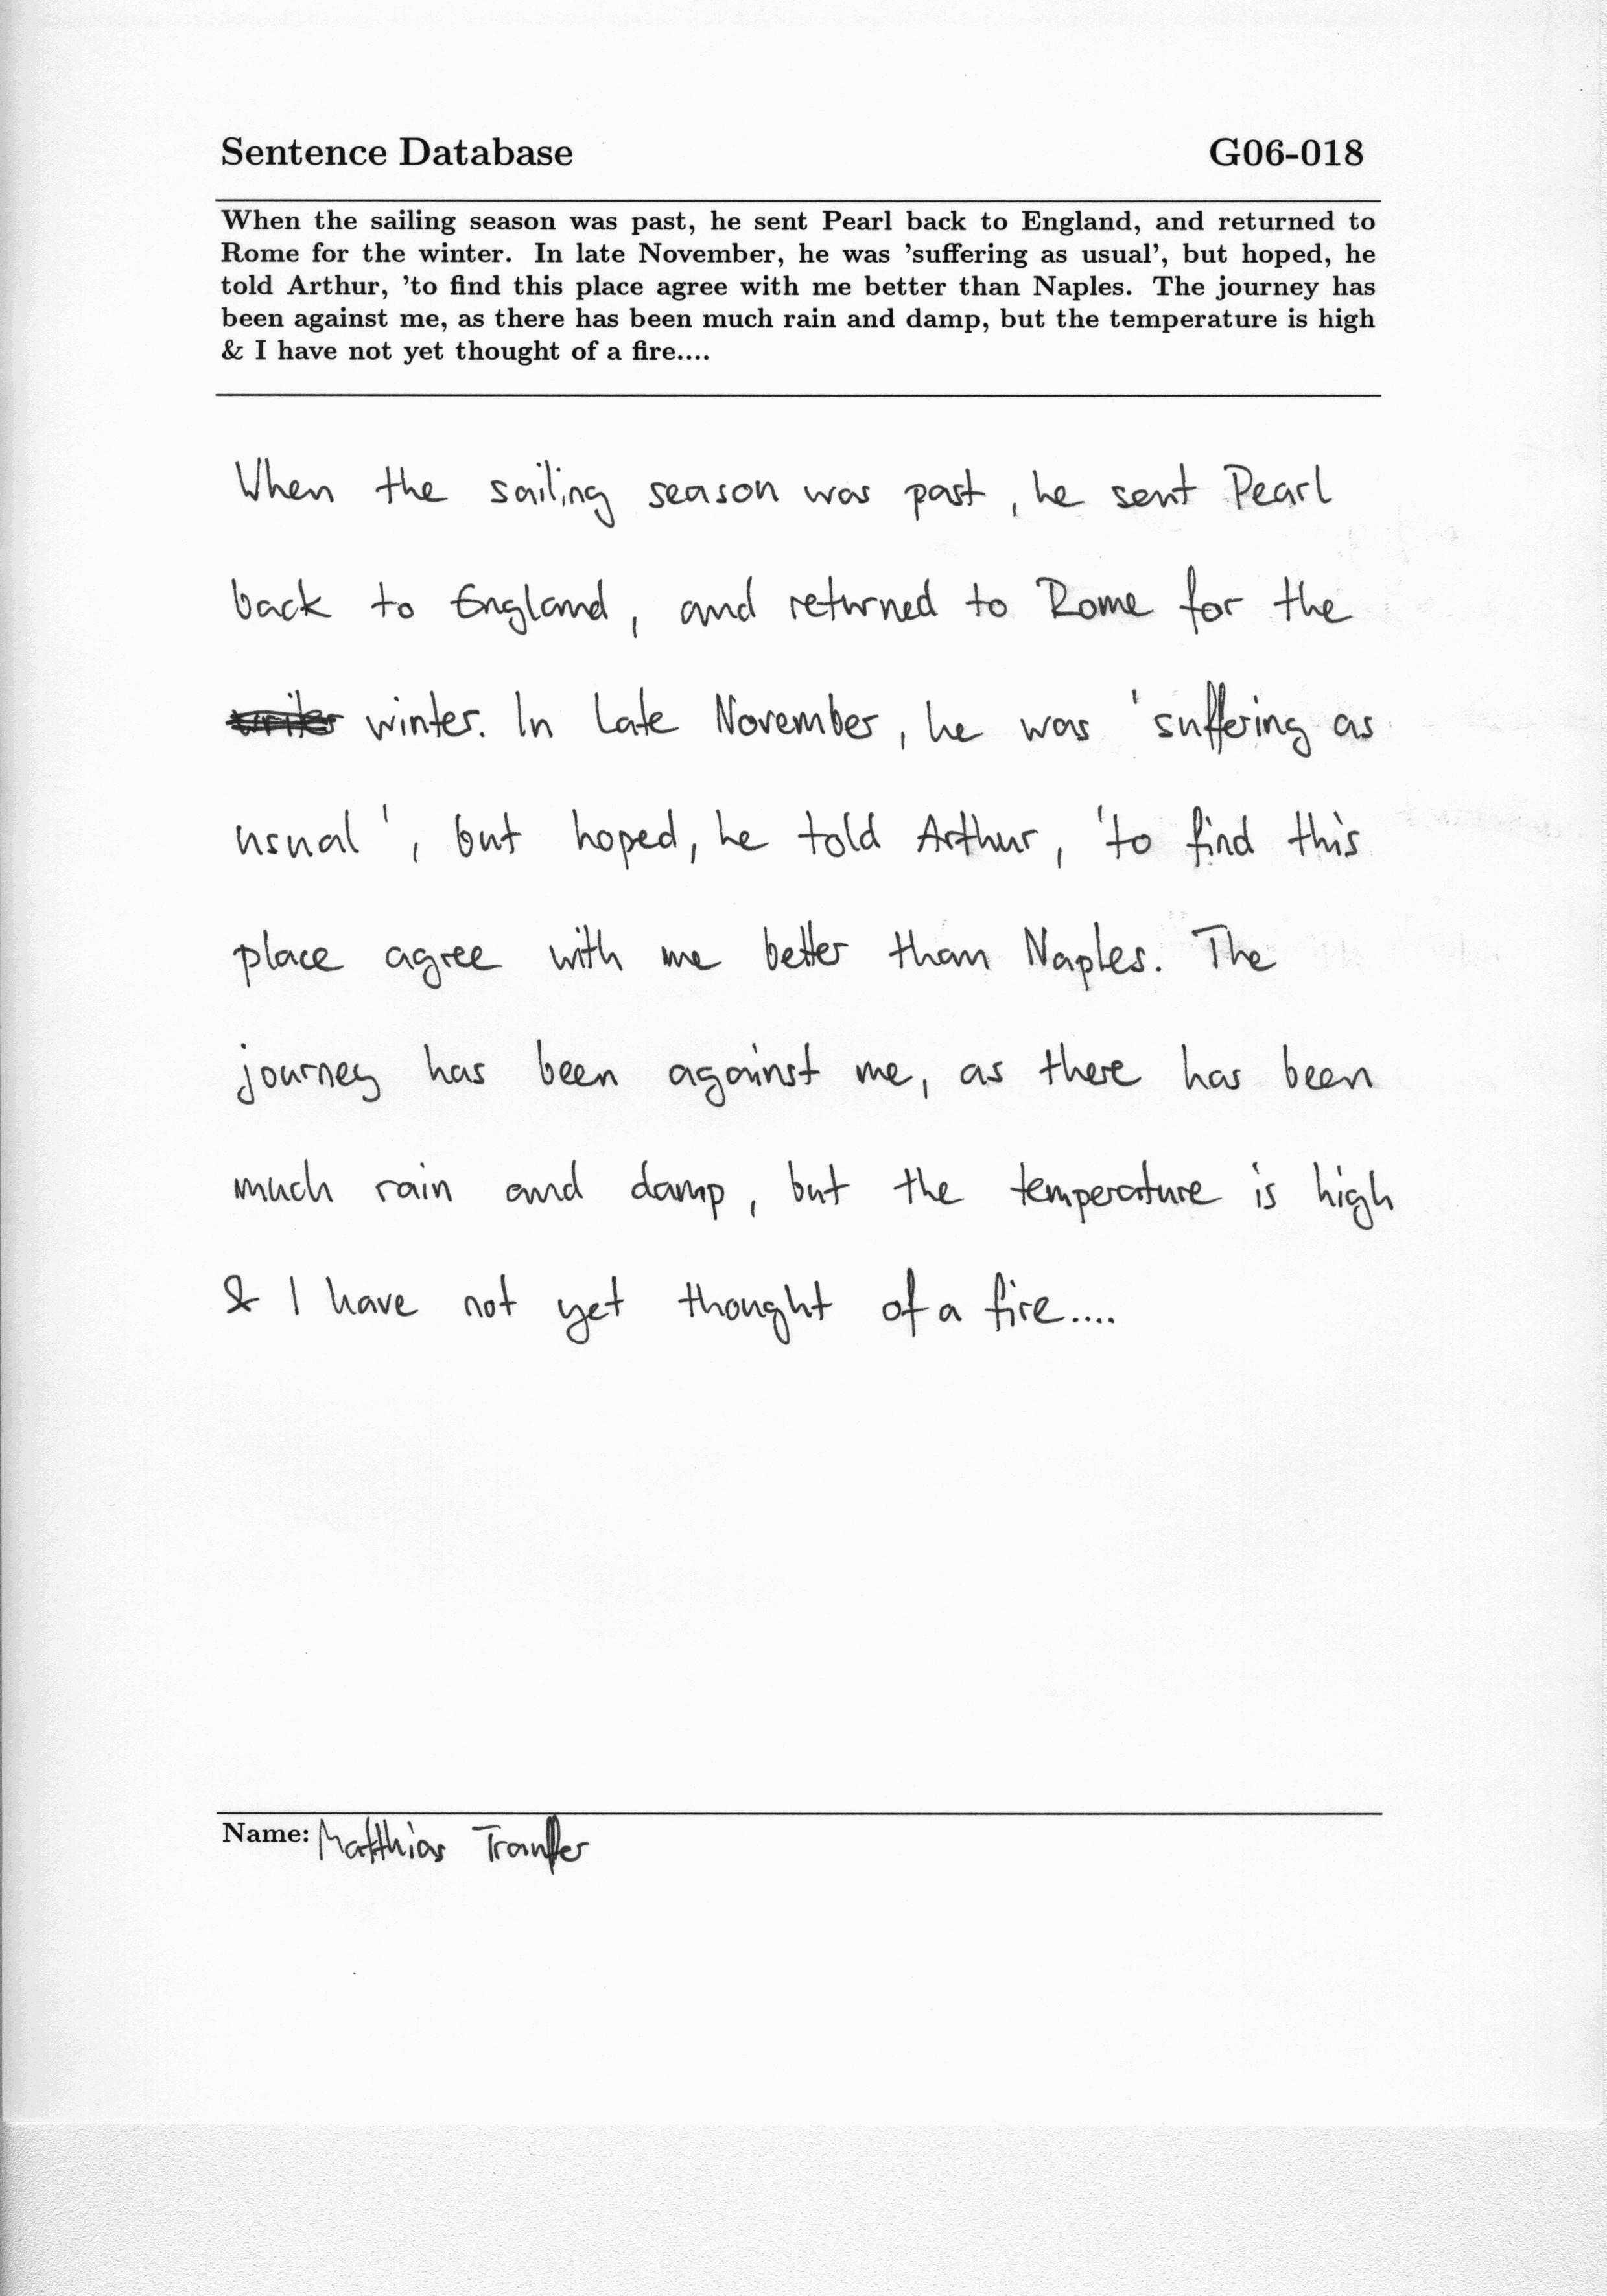 Sentence Database G06-018
When the sailing season was past, he sent Pearl back to England, and returned to
Rome for the winter. In late November, he was 'suffering as usual', but hoped, he
told Arthur, 'to find this place agree with me better than Naples. The journey has
been against me, as there has been much rain and damp, but the temperature is high
& I have not yet thought of a fire....
When the sailing season was past, he sent Pearl
back to England, and returned to Rome for the
winter. In late November, he was 'suffering as
usual', but hoped, he told Arthur, 'to find this
place agree with me better than Naples. The
journey has been against me, as there has been
much rain and damp, but the temperature is high
& I have not yet thought of a fire....
Name: Matthias